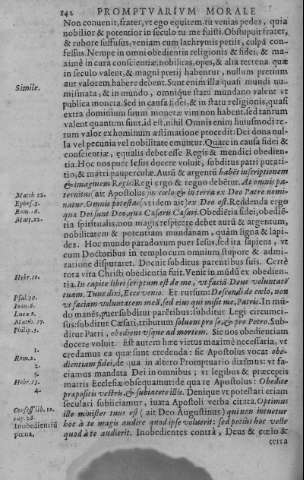 242 PROMPTVARIVM MORALE
Non conuenit, frater, vt ego equitem, tu venias pedes, quia
nobilior & potentior in seculo tu me fuisti. Obstupuit frater,
& rubore suffusus, veniam cum lachrymis petijt, culpā con-
fessus. Nempe in omni obedientia religionis & fidei, & ma-
ximè in cura conscientiæ, nobilitas, opes, & alta terrena quæ
in seculo valent, & magni precij habentur, nullum pretium
aut valorem habere debent. Sunt enim illa quasi mundi nu-
mismata, & in mundo, omnique statu mundano valent vt
publica moneta. Sed in causa fidei, & in statu religionis, quasi
extra dominium suum moneta vim non habent: sed tantum
valent quantum sunt, id est, nihil. Omnis enim huiusmodi re-
rum valor ex hominum æstimatione procedit: Dei dona nul-
la vel pecunia vel nobilitate emuntur. Quare in causa fidei &
conscientiæ, equalis debet esse Regis & mendici obedien-
tia. Hoc nos puer Iesus docere voluit, subditus patri putati-
tio, & matri pauperculæ. Auru & argenti habēs inscriptionem
& imaginem Regis: Regi ergo & regno debetur. At omnis pa-
ternitas ( ait Apostolus) in cœlo & in terra ex Deo Patre nomi-
natur. Omnis potestas ( vt idem ait ) ex Deo est. Reddenda ergo
qua Dei sunt Deo, quæ Cæsaris Cæsari. Obedientia fidei, obediē-
tia spiritualis, non magis respicere debet aurū & argentum,
nobilitatem & potentiam mundanam, quàm ligna & lapi-
des. Hoc mundo paradoxum puer Iesus, sed ita sapiens, vt
cum Doctoribus in templo cum omnium stupore & admi-
ratione disputaret. Docuit subditus parentibus suis. Certè
tota vita Christi obedientia fuit. Venit in mūdū ex obedien-
tia. In capite libri scriptum est de me, vt faciā Deus voluntatē
tuam. Tunc dixi, Ecce venio. Et rursum: Descendi de cœlo, non
vt faciam voluntatem meā, sed eius qui misit me, Patris. In mū-
do manēs, puer subditur parētibus: subditur Legi circumci-
sus: subditur Cæsari, tributum soluens pro se, & pro Petro. Sub-
ditur Patri, obediens vsque ad mortem. Sic nos obedientiam
docere voluit. Est autem hæc virtus maximè necessaria, vt
credamus ea quæ sunt credenda: sic Apostolus vocat obe-
dientiam fidei, de qua in altero Promptuario diximus: vt fa-
ciamus mandata Dei in omnibus, vt legibus & præceptis
matris Ecclesiæ obsequamur: de qua re Apostolus: Obedite
præpositis vestris, & subiacete illis. Denique vt potestati etiam
seculari subijciamur, iuxta Apostoli verba citata. Optimus
ille minister tuus est ( ait Deo Augustinus) qui non intuetur
hoc à te magis audire quod ipse voluerit: sed potius hoc velle
quod à te audierit. Inobedientes contrà, Deus & cœlo &
terra
Simile.
Matth. 22.
Ephes. 3.
Rom. 13.
Hebr. 10.
Psal. 39.
Ioan. 6.
Luca 2.
Matth. 17.
Philip. 2.
1.
Rom. 1.
2.
Hebr. 13.
3.
Confess. lib. 10.
cap. 26.
Inobedientiū
pœna.